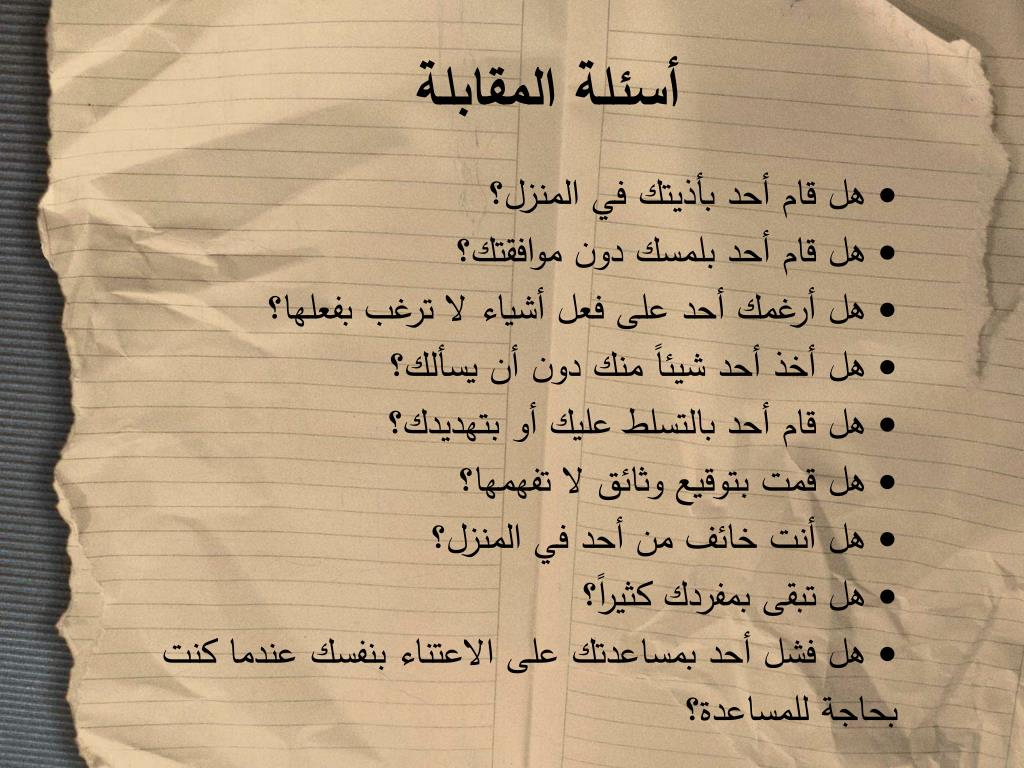 أسئلة المقابلة
• هل قام أحد بأذيتك في المنزل؟
• هل قام أحد بلمسك دون موافقتك؟
• هل أرغمك أحد على فعل أشياء لا ترغب بفعلها؟
• هل أخذ أحد شيئاً منك دون أن يسألك؟
• هل قام أحد بالتسلط عليك أو بتهديدك؟
• هل قمت بتوقيع وثائق لا تفهمها؟
• هل أنت خائف من أحد في المنزل؟
• هل تبقى بمفردك كثيراً؟
• هل فشل أحد بمساعدتك على الاعتناء بنفسك عندما كنت
بحاجة للمساعدة؟